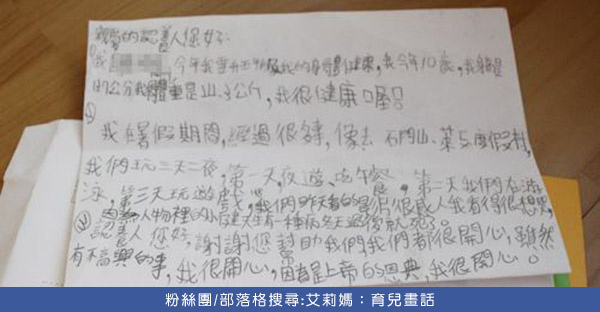 親愛的認養人您好:
我 今年我要升五年級我的身體健康,我今年10歲,我身高是
公分我體重是 公斤,我很健康喔!
我在暑假期間,經過很多事,像去石門山、 度假村,
我們玩三天二夜,第一天夜遊、吃午餐 ,第二天我們在游
泳,第三天玩遊戲,我們昨天看的影片很感人我看得很想哭,
因為人物裡的小 有一種病冬天過後就死了。
認養人您好,謝謝您幫助我們我們都很開心,雖然
有不高興的事,我很開心,因為是上帝的恩典,我很開心。
粉絲團/部落格搜尋:艾莉媽:育兒畫話